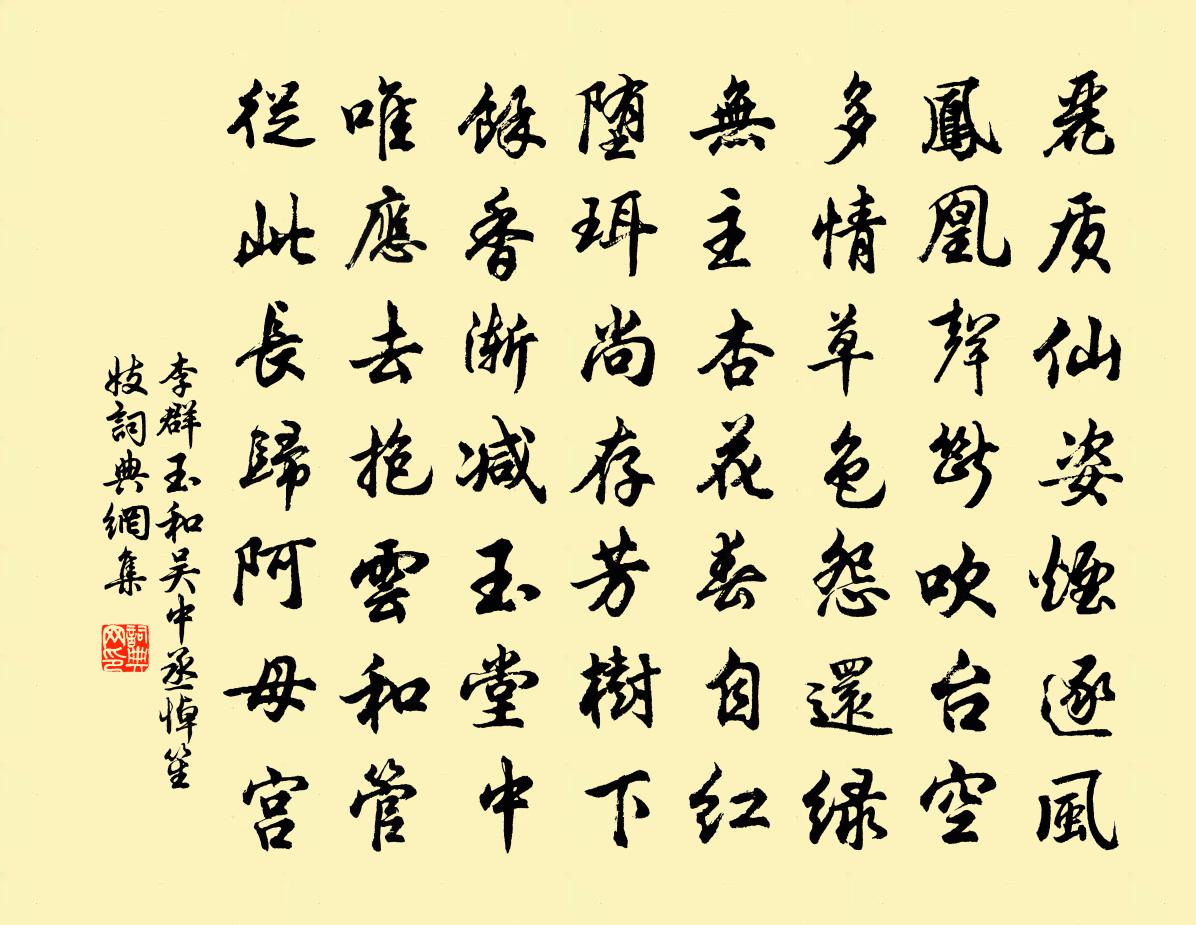 麗质仙姿煙逐風
鳳凰聲断吹台空
多情草色怨還緑
無主杏花春自红
堕珥尚存芳樹下
餘香渐减玉堂中
唯應去抱雲和管
從此長歸阿母宫
李群玉和吴中丞悼笙
妓詞典網集
詞典
网印